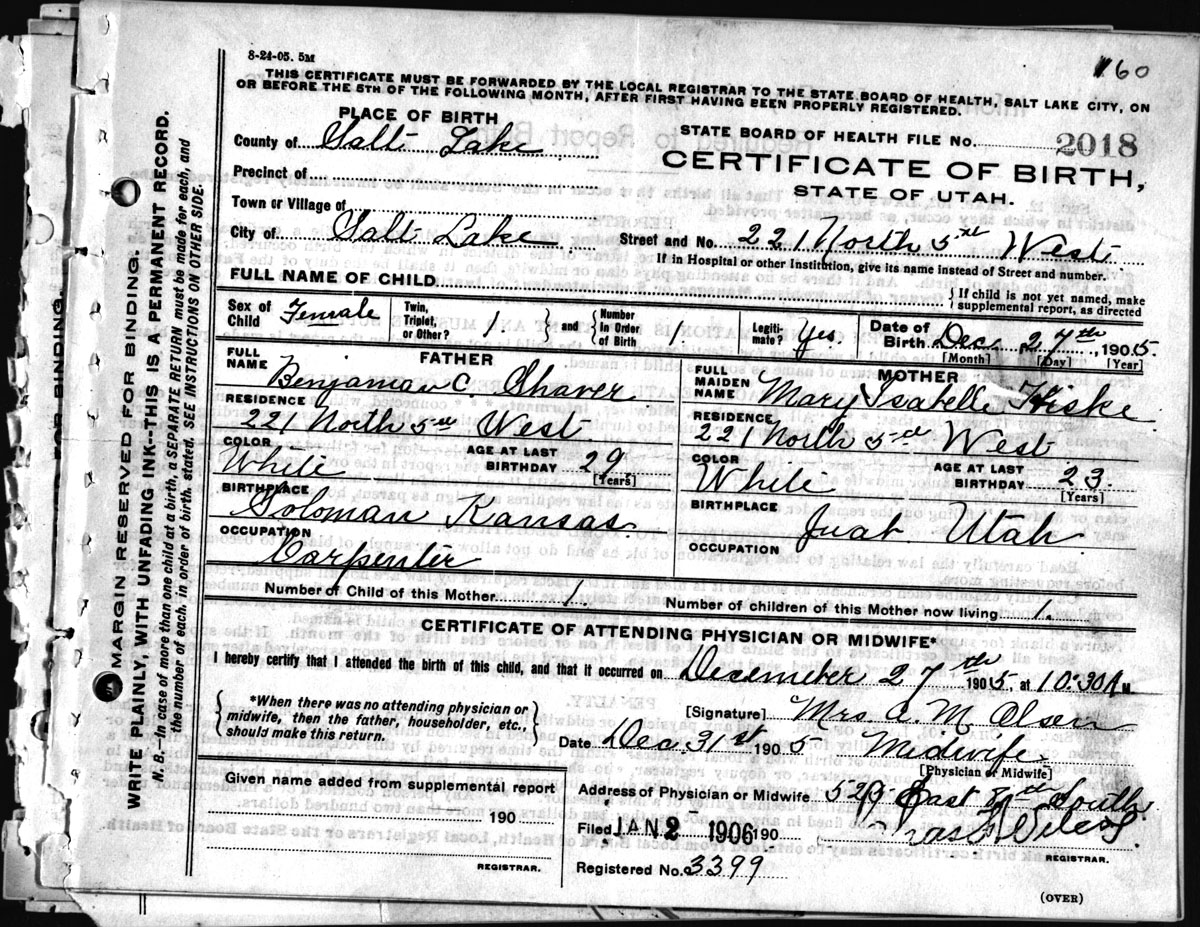 8-24-05. 5M
160
THIS CERTIFICATE MUST BE FORWARDED BY THE LOCAL REGISTRAR TO THE STATE BOARD OF HEALTH, SALT LAKE CITY, ON
OR BEFORE THE 5TH OF THE FOLLOWING MONTH, AFTER FIRST HAVING BEEN PROPERLY REGISTERED.
PLACE OF BIRTH
County of Salt Lake
Precinct of
Town or Village of
City of Salt Lake
STATE BOARD OF HEALTH FILE No. 2018
CERTIFICATE OF BIRTH,
STATE OF UTAH.
Street and No. 221 North 5th West
If in Hospital or other Institution, give its name instead of Street and number.
FULL NAME OF CHILD
If child is not yet named, make
supplemental report, as directed
Sex of Child Female
Twin, Triplet, or Other? 1 and Number in Order of Birth 1.
Legiti- mate? Yes.
Date of Birth Dec. 27th, 1905.
[Month] [Day] [Year]
FATHER
FULL NAME Benjaman C. Shaver
RESIDENCE
221 North 5th West
COLOR White
AGE AT LAST BIRTHDAY 29
[Years]
BIRTHPLACE
Soloman Kansas.
OCCUPATION
Carpenter
MOTHER
FULL MAIDEN NAME Mary Isabelle Hiske
RESIDENCE
221 North 5th West
COLOR White
AGE AT LAST BIRTHDAY 23.
[Years]
BIRTHPLACE Juab Utah
OCCUPATION
Number of Child of this Mother 1.
Number of children of this Mother now living 1.
CERTIFICATE OF ATTENDING PHYSICIAN OR MIDWIFE*
I hereby certify that I attended the birth of this child, and that it occurred on Decemeber 27th 1905, at 10:30 A M.
*When there was no attending physician or
midwife, then the father, householder, etc.,
should make this return.
[Signature] Mrs. A. M. Olsen
Date Dec 31st 1905 Midwife
[Physician or Midwife]
Given name added from supplemental report
190
REGISTRAR.
Address of Physician or Midwife East 8th South
Filed JAN 2 1906 190
REGISTRAR.
Registered No. 3399
(OVER)
MARGIN RESERVED FOR BINDING.
WRITE PLAINLY, WITH UNFADING INK--THIS IS A PERMANENT RECORD.
N. B.—In case of more than one child at a birth, a SEPARATE RETURN must be made for each, and
the number of each, in order of birth, stated. SEE INSTRUCTIONS ON OTHER SIDE.
FOR BINDING.